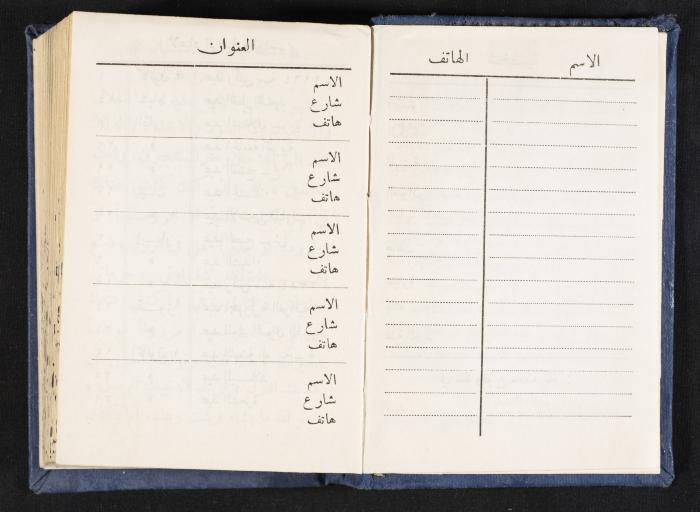 الاسم الهاتف
العنوان
الاسم
شارع
هاتف
الاسم
شارع
هاتف
الاسم
شارع
هاتف
الاسم
شارع
هاتف
الاسم
شارع
هاتف